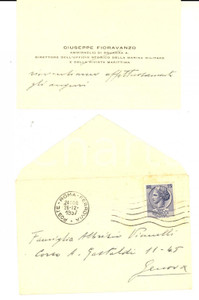 GIUSEPPE FIORAVANZO
AMMIRAGLIO DI SQUADRA
DIRETTORE DELL'UFFICIO STORICO DELLA MARINA MILITARE
E DELLA RIVISTA MARITTIMA
ricambiano affettuosamente
gli auguri
POSTE ROMA FERROVIA
1957
Famiglia
Corso A. Gastaldi 11-45
Genova